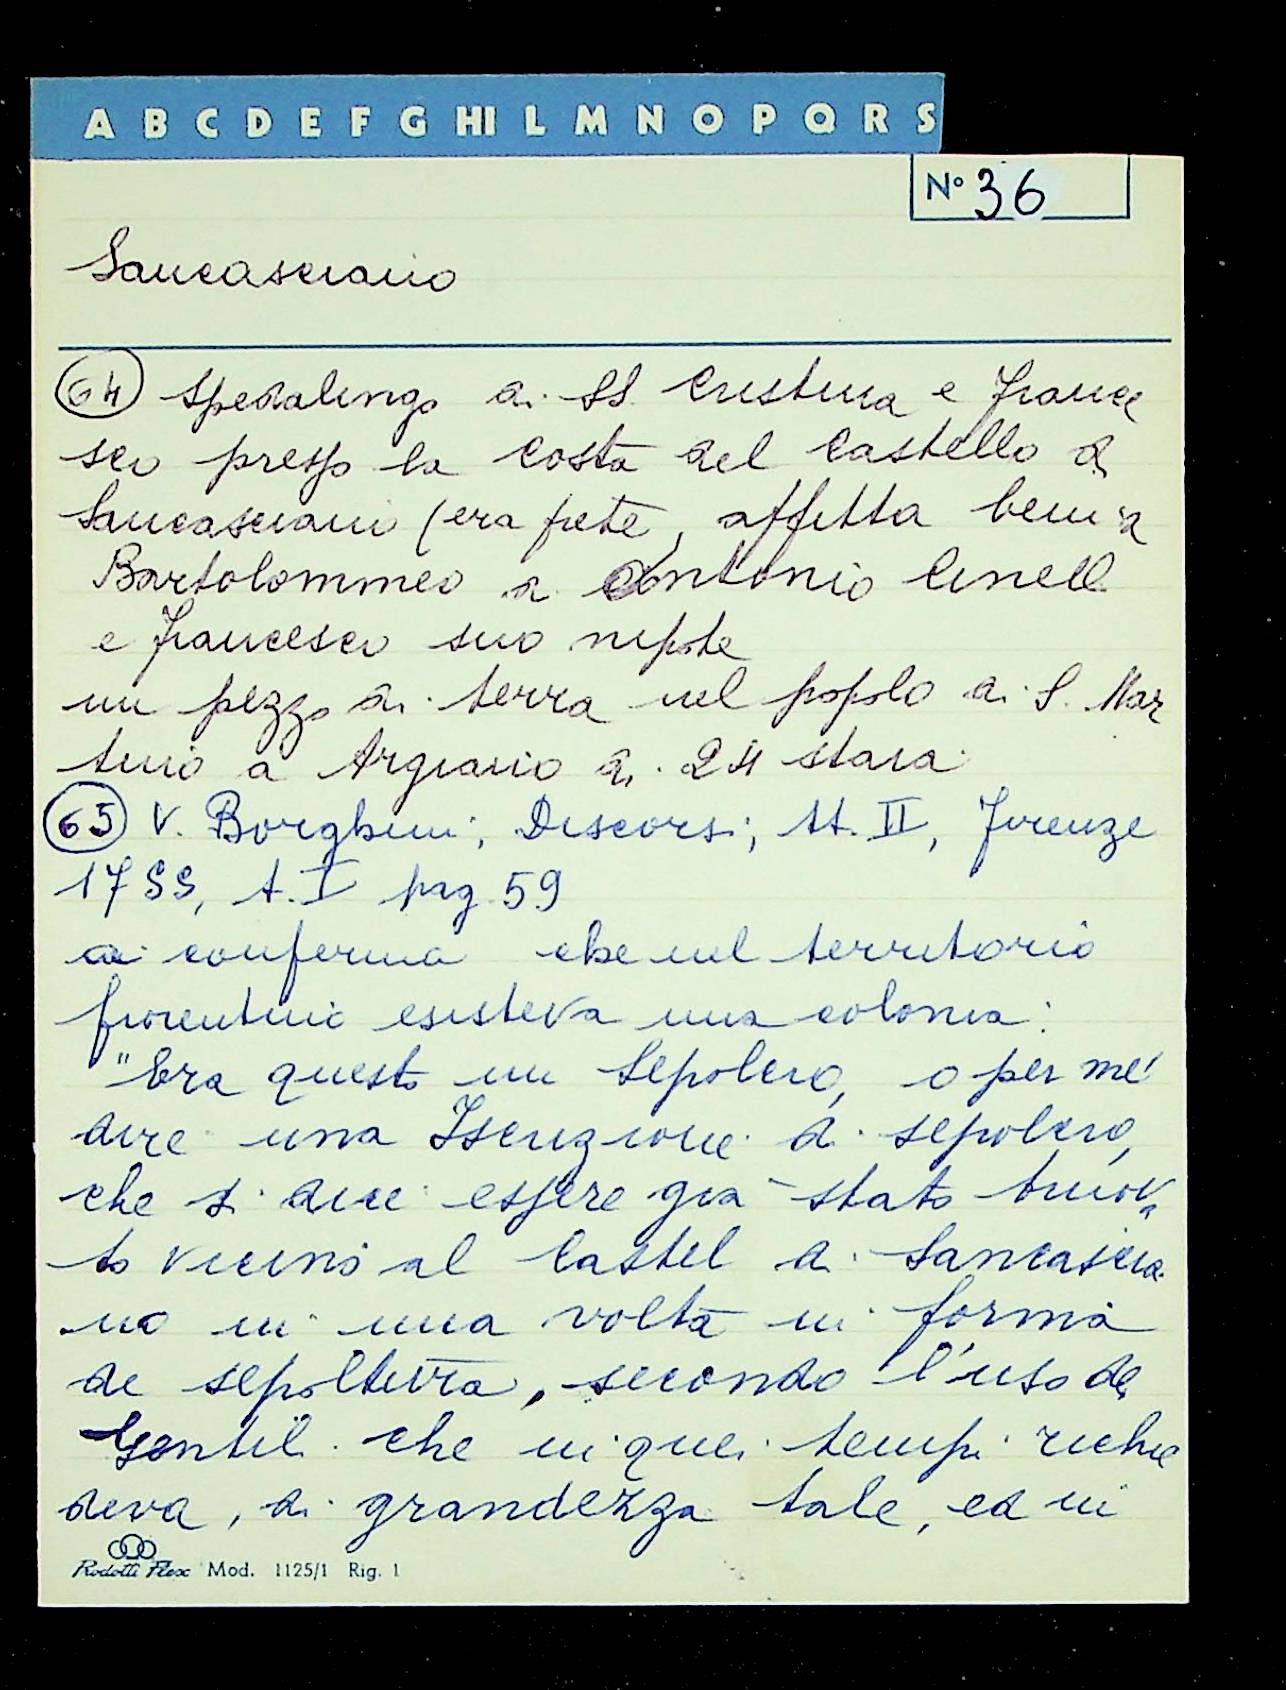 A B C D E F G HI L M N O P Q R S
N° 36
Sancasciano
64 Spedalingo di SS Cristina e France
sco presso la costa del Castello di
Sancasciano (era prete, affitta beni a
Bartolommeo di Antonio Cinelli
e Francesco suo nipote
un pezzo di terra nel popolo di S. Mar
tino a Argiano di 24 staia
65 V. Borghini, Discorsi, tt. II, Firenze
1755, t. I pag. 59
a conferma che nel territorio
fiorentino esisteva una colonia:
"Era questo un Sepolcro, o per me'
dire una Iscrizione di sepolcro,
che si dice essere già stato trova
to vicino al Castel di Sancascia
no in una volta in forma
de sepoltura, secondo l'uso de
Gentili che in quei tempi richie
deva, di grandezza tale, ed in
Rodotti Flex Mod. 1125/1 Rig. 1